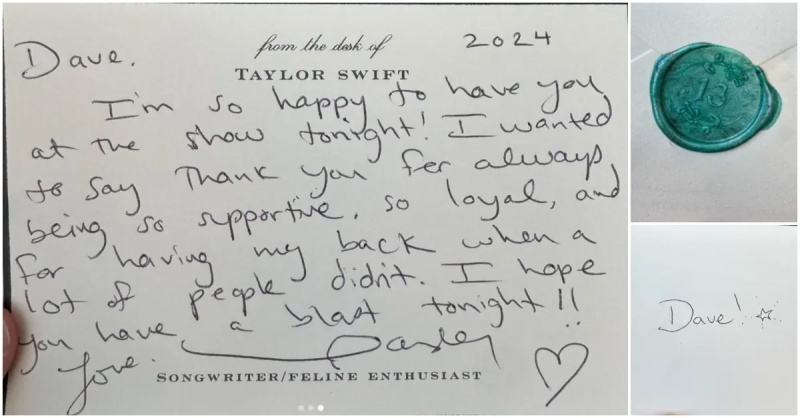 Dave.
from the desk of
2024
TAYLOR SWIFT
I'm so happy to have you
at the show tonight! I wanted
to say Thank you for always
being so supportive, so loyal, and
for having my back when a
lot of people didn't. I hope
you have a blast tonight!!
Love.
SONGWRITER/FELINE ENTHUSIAST
Dave!